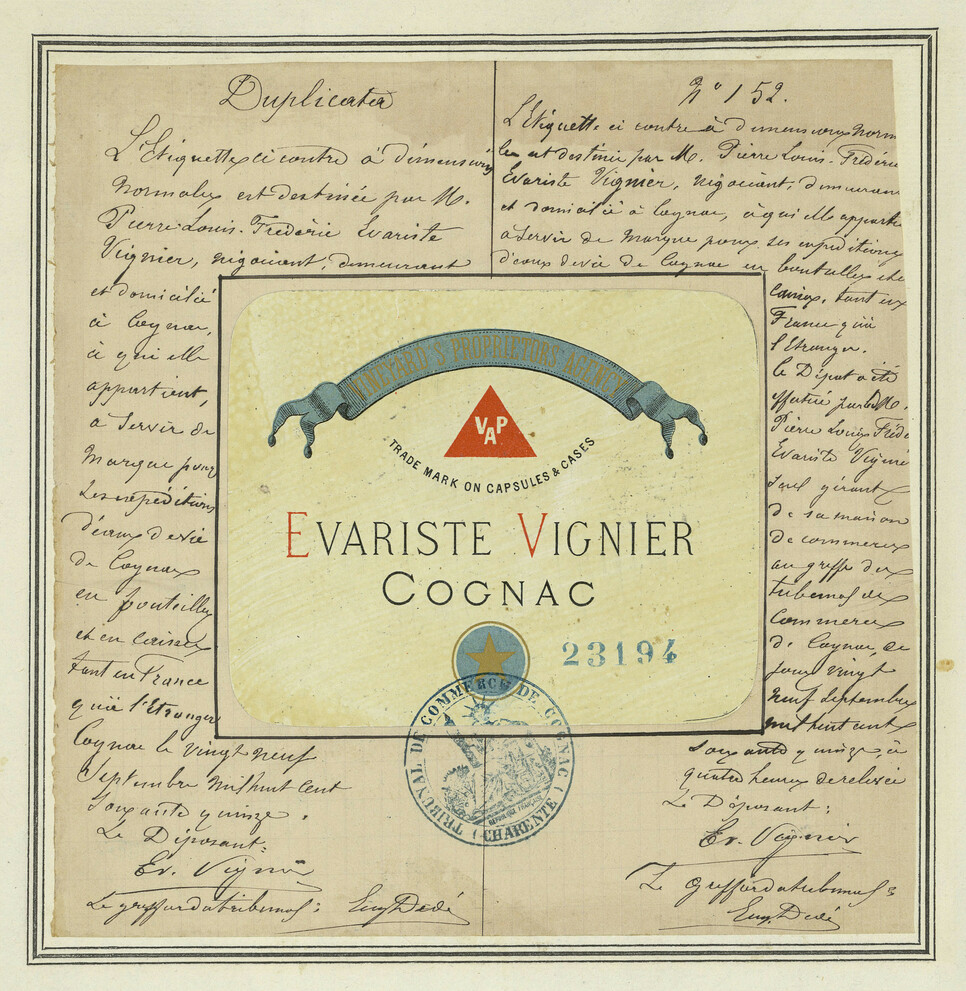 Duplicata
L'Etiquette ci contre à dimensions
Normales est destinée par M.
Pierre Louis Frédéric Evariste
Vignier, négociant, demeurant
et domicilié
à Cognac,
à qui elle
appartient,
à Servir de
Marque pour
Les expéditions
d'eaux de vie
de Cognac
en bouteilles
et en caisses
tant en France
qu'à l'Etranger
Cognac le vingt neuf
Septembre mil huit cent
Soixante quinze.
Le Déposant:
Ev. Vignier
Le greffier du tribunal:
Eug Dédé
N° 152.
L'Etiquette ci contre à dimensions norma
les est destinée par M. Pierre Louis Frédéric
Evariste Vignier, négociant, demeurant
et domicilié à Cognac, à qui elle appartient
à Servir de Marque pour ses expéditions
d'eaux de vie de Cognac en bouteilles et en
caisses, tant en
France qu'à
l'Etranger.
Le Dépôt a été
effectué par led M.
Pierre Louis Frédéric
Evariste Vignier
seul gérant
de sa maison
de commerce
au greffe du
tribunal de
Commerce
de Cognac, ce
jour vingt
neuf Septembre
mil huit cent
Soixante quinze, à
quatre heures de relevée
Le Déposant:
Ev. Vignier
Le greffier du tribunal:
Eug. Dédé
VINEYARD'S PROPRIETORS AGENCY
VAP
TRADE MARK ON CAPSULES & CASES
EVARISTE VIGNIER
COGNAC
23194
TRIBUNAL DE COMMERCE DE COGNAC
(CHARENTE)